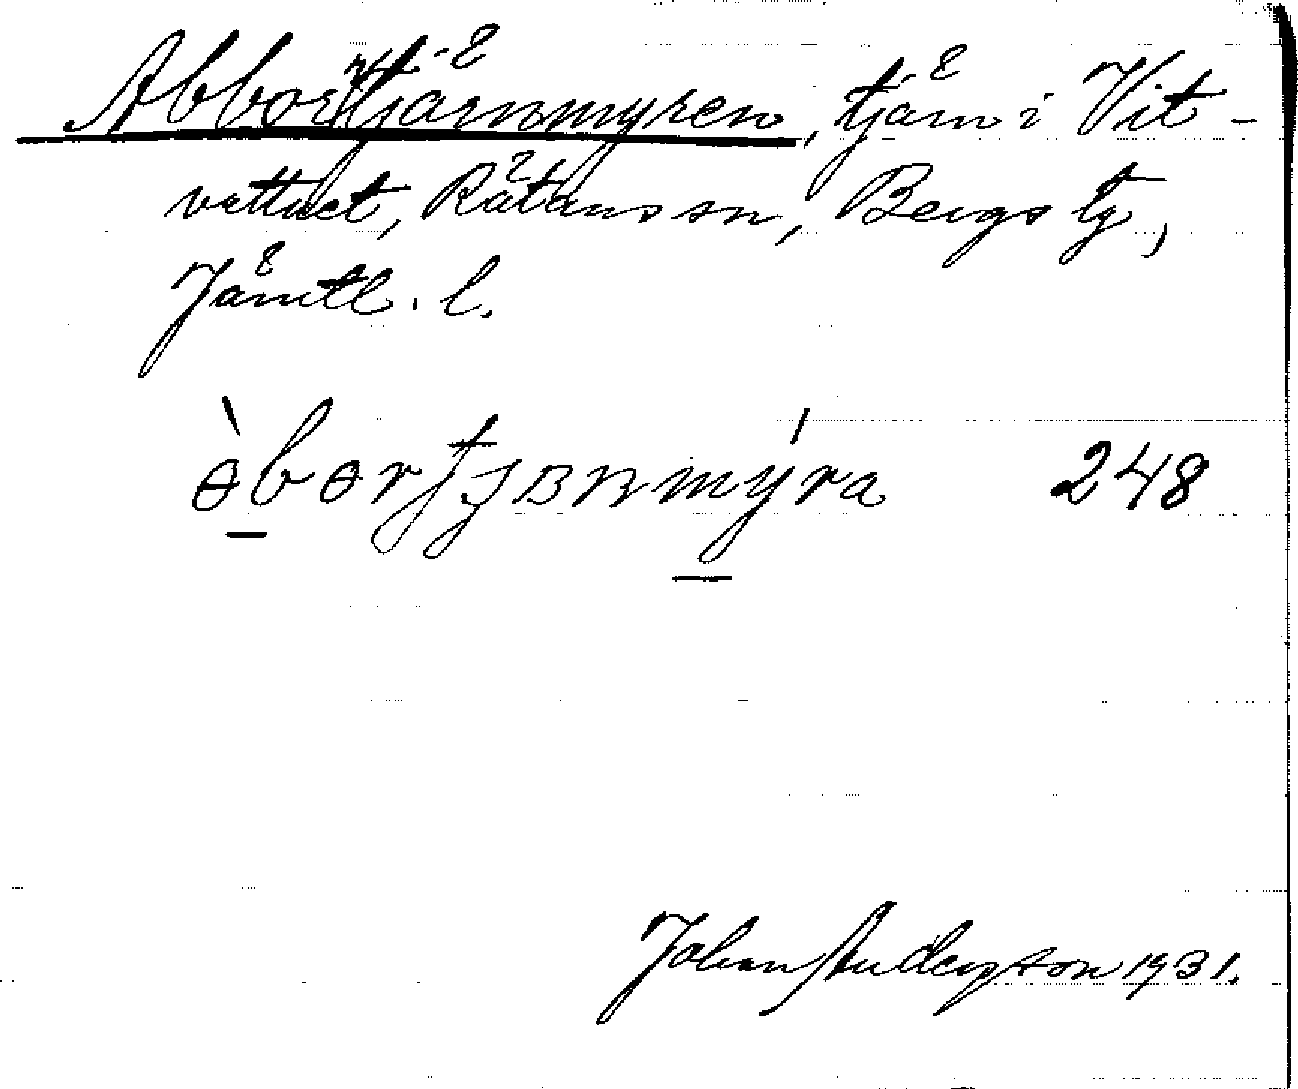 Abborrtjärnmyren, tjärn i Vit-
vattnet, Rätans sn, Bergs tg,
Jämtl. l.
ɵ̀bɵrtjɜnmýra 248
Johan Anderzson 1931.